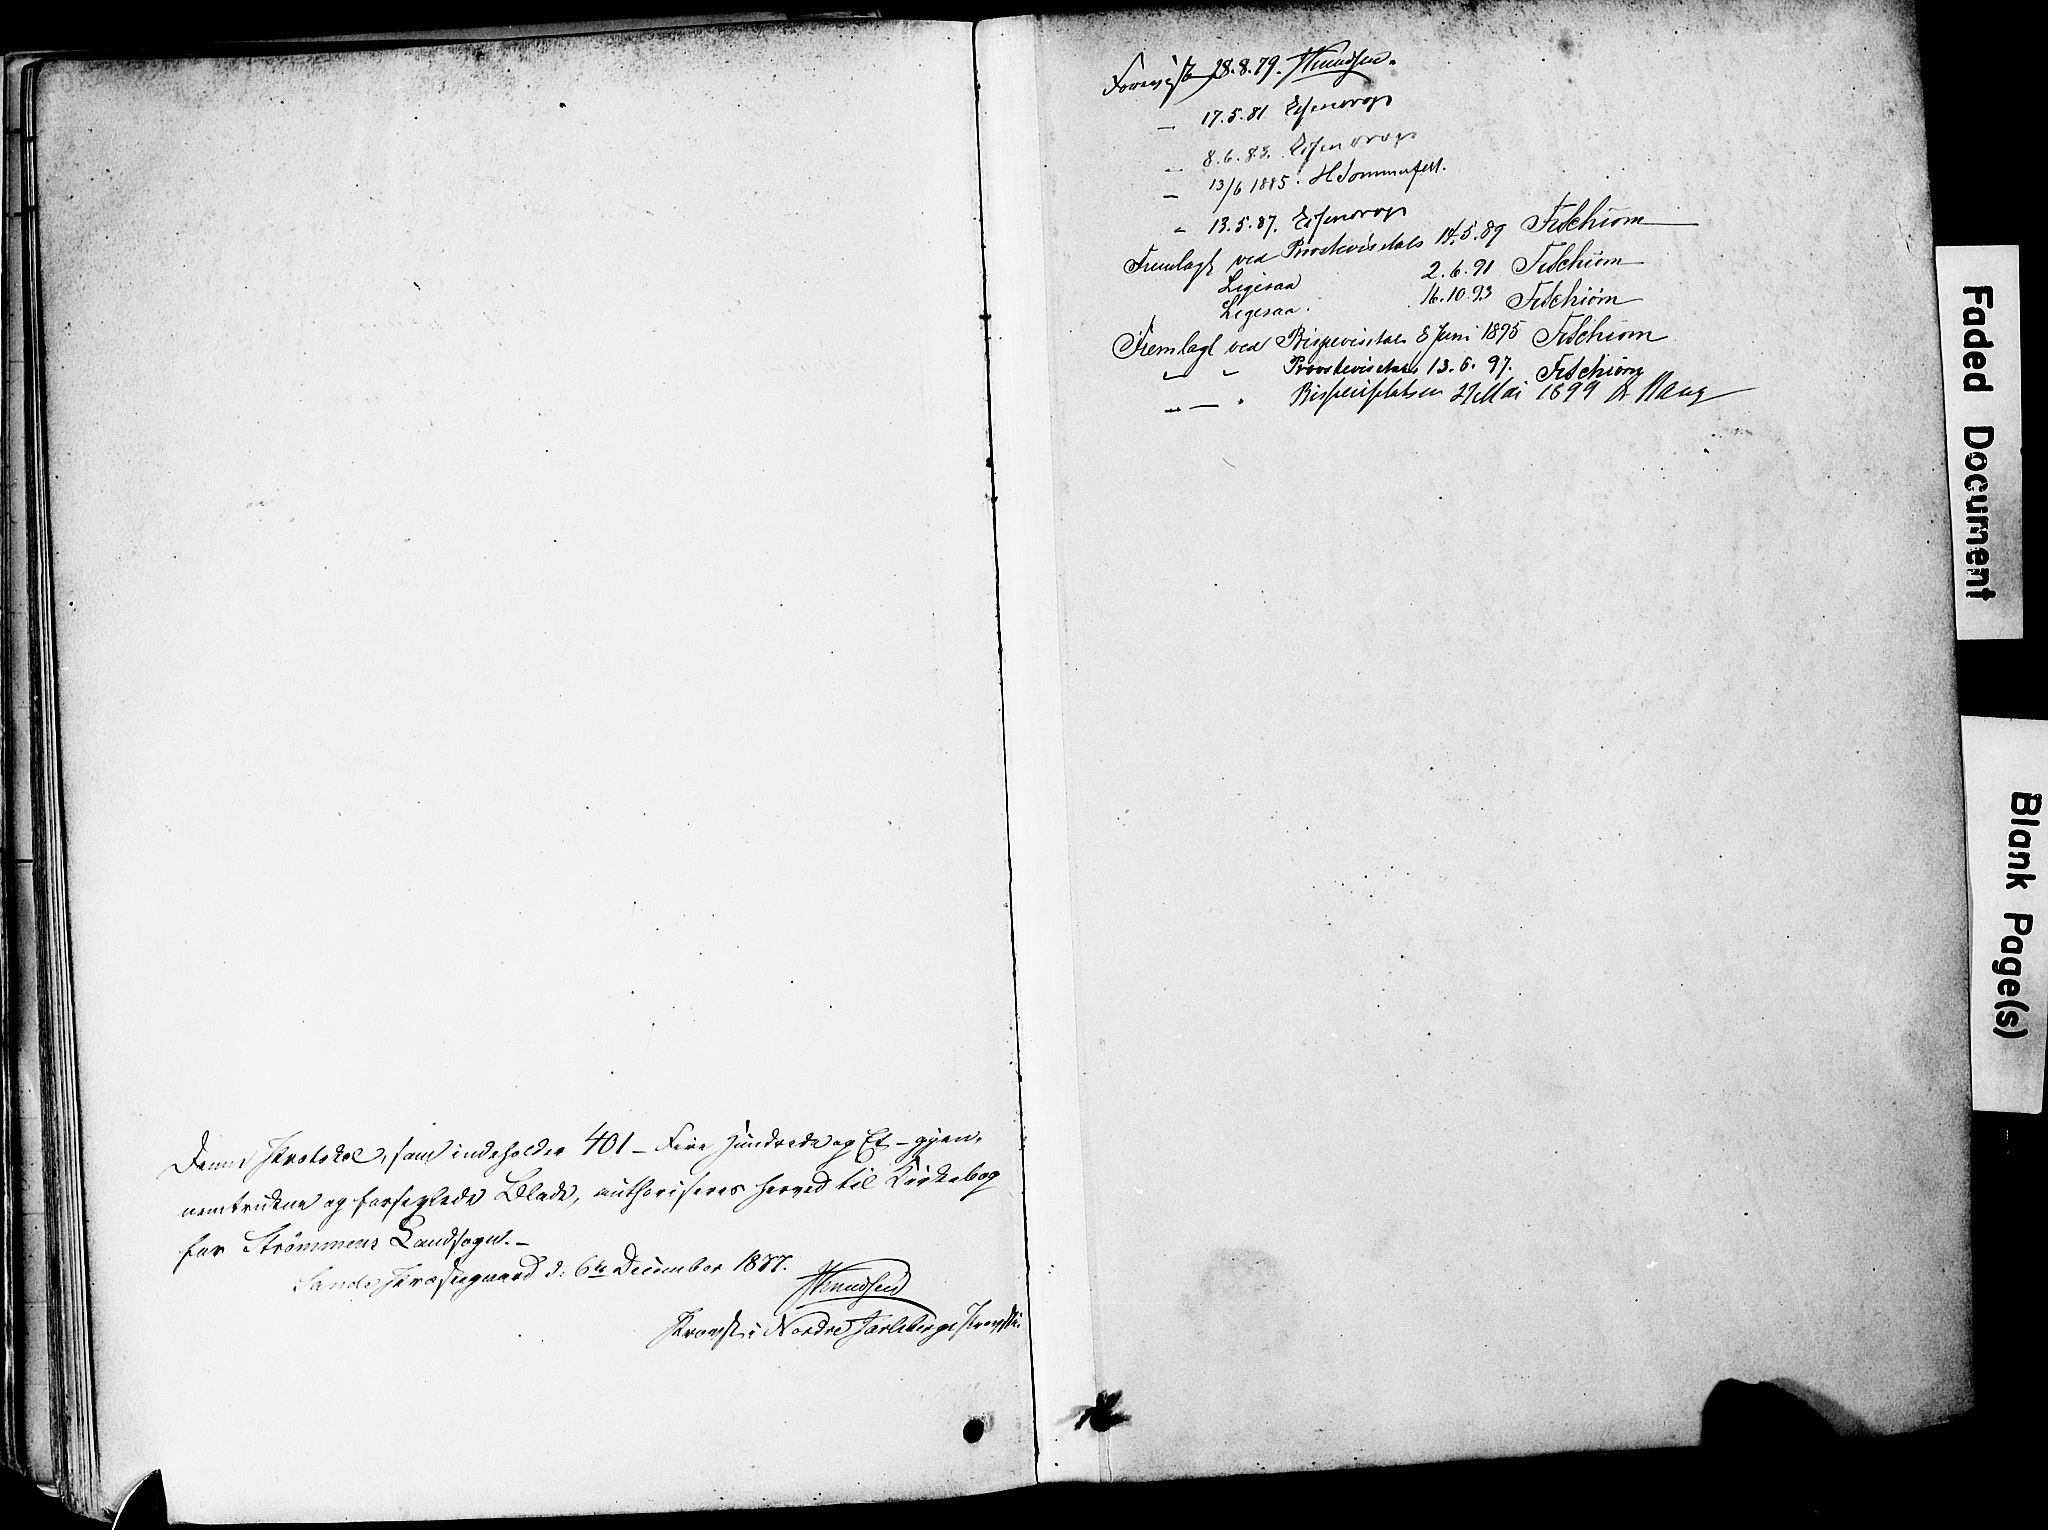 Denne Protokol, som indeholder 401 – Fire Hundrede og Et – gjen-
nemtrukne og forseglede Blade, authoriseres herved til Kirkebog
for Strømmens Landsogn. –
Sande Præstegaard d: 6te December 1877.
JKnudsen
Provst i Nordre Jarlsbergs Provsti.
Forevist 28.8.79. JKnudsen.
— 17.5.81 Essendrop
— 8.6.83. Essendrop
— 13/6 1885. HSommerfelt.
" 13.5.87. Essendrop
Fremlagt ved Provstevisitats 14.5.89 FrSchiøm
Ligesaa 2.6.91 FrSchiøm
Ligesaa. 16.10.93 FrSchiøm
Fremlagt ved Bispevisitats 8 Juni 1895 FrSchiøm
" " Provstevisitats 13.6.97. FrSchiøm
" — " Bispevisitatsen 27 Mai 1899
Faded Document
Blank Page(s)